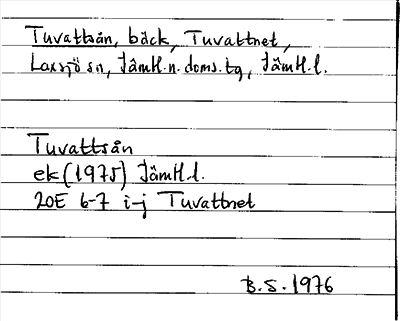 Tuvattsån, bäck, Tuvattnet,
Laxsjö sn, Jämtl. n. doms. tg, Jämtl. l.
Tuvattsån
ek (1975) Jämtl. l.
20E 6-7 i-j Tuvattnet
B.S. 1976